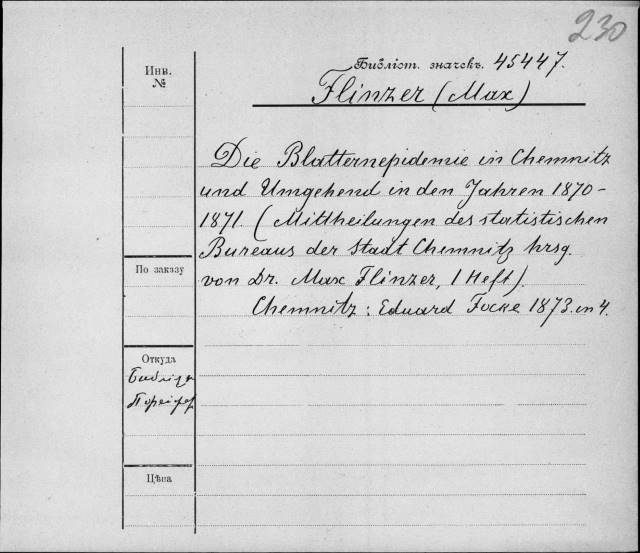 230
Библіот. значекъ. 45447.
Инв.
№
Flinzer (Max)
Die Blatternepidemie in Chemnitz
und Umgehend in den Jahren 1870-
1871. (Mittheilungen des statistischen
Bureaus der Stadt Chemnitz hrsg.
von Dr. Max Flinzer, 1 Heft).
Chemnitz: Eduard Focke 1873. in 4.
По заказу
Откуда
Цѣна